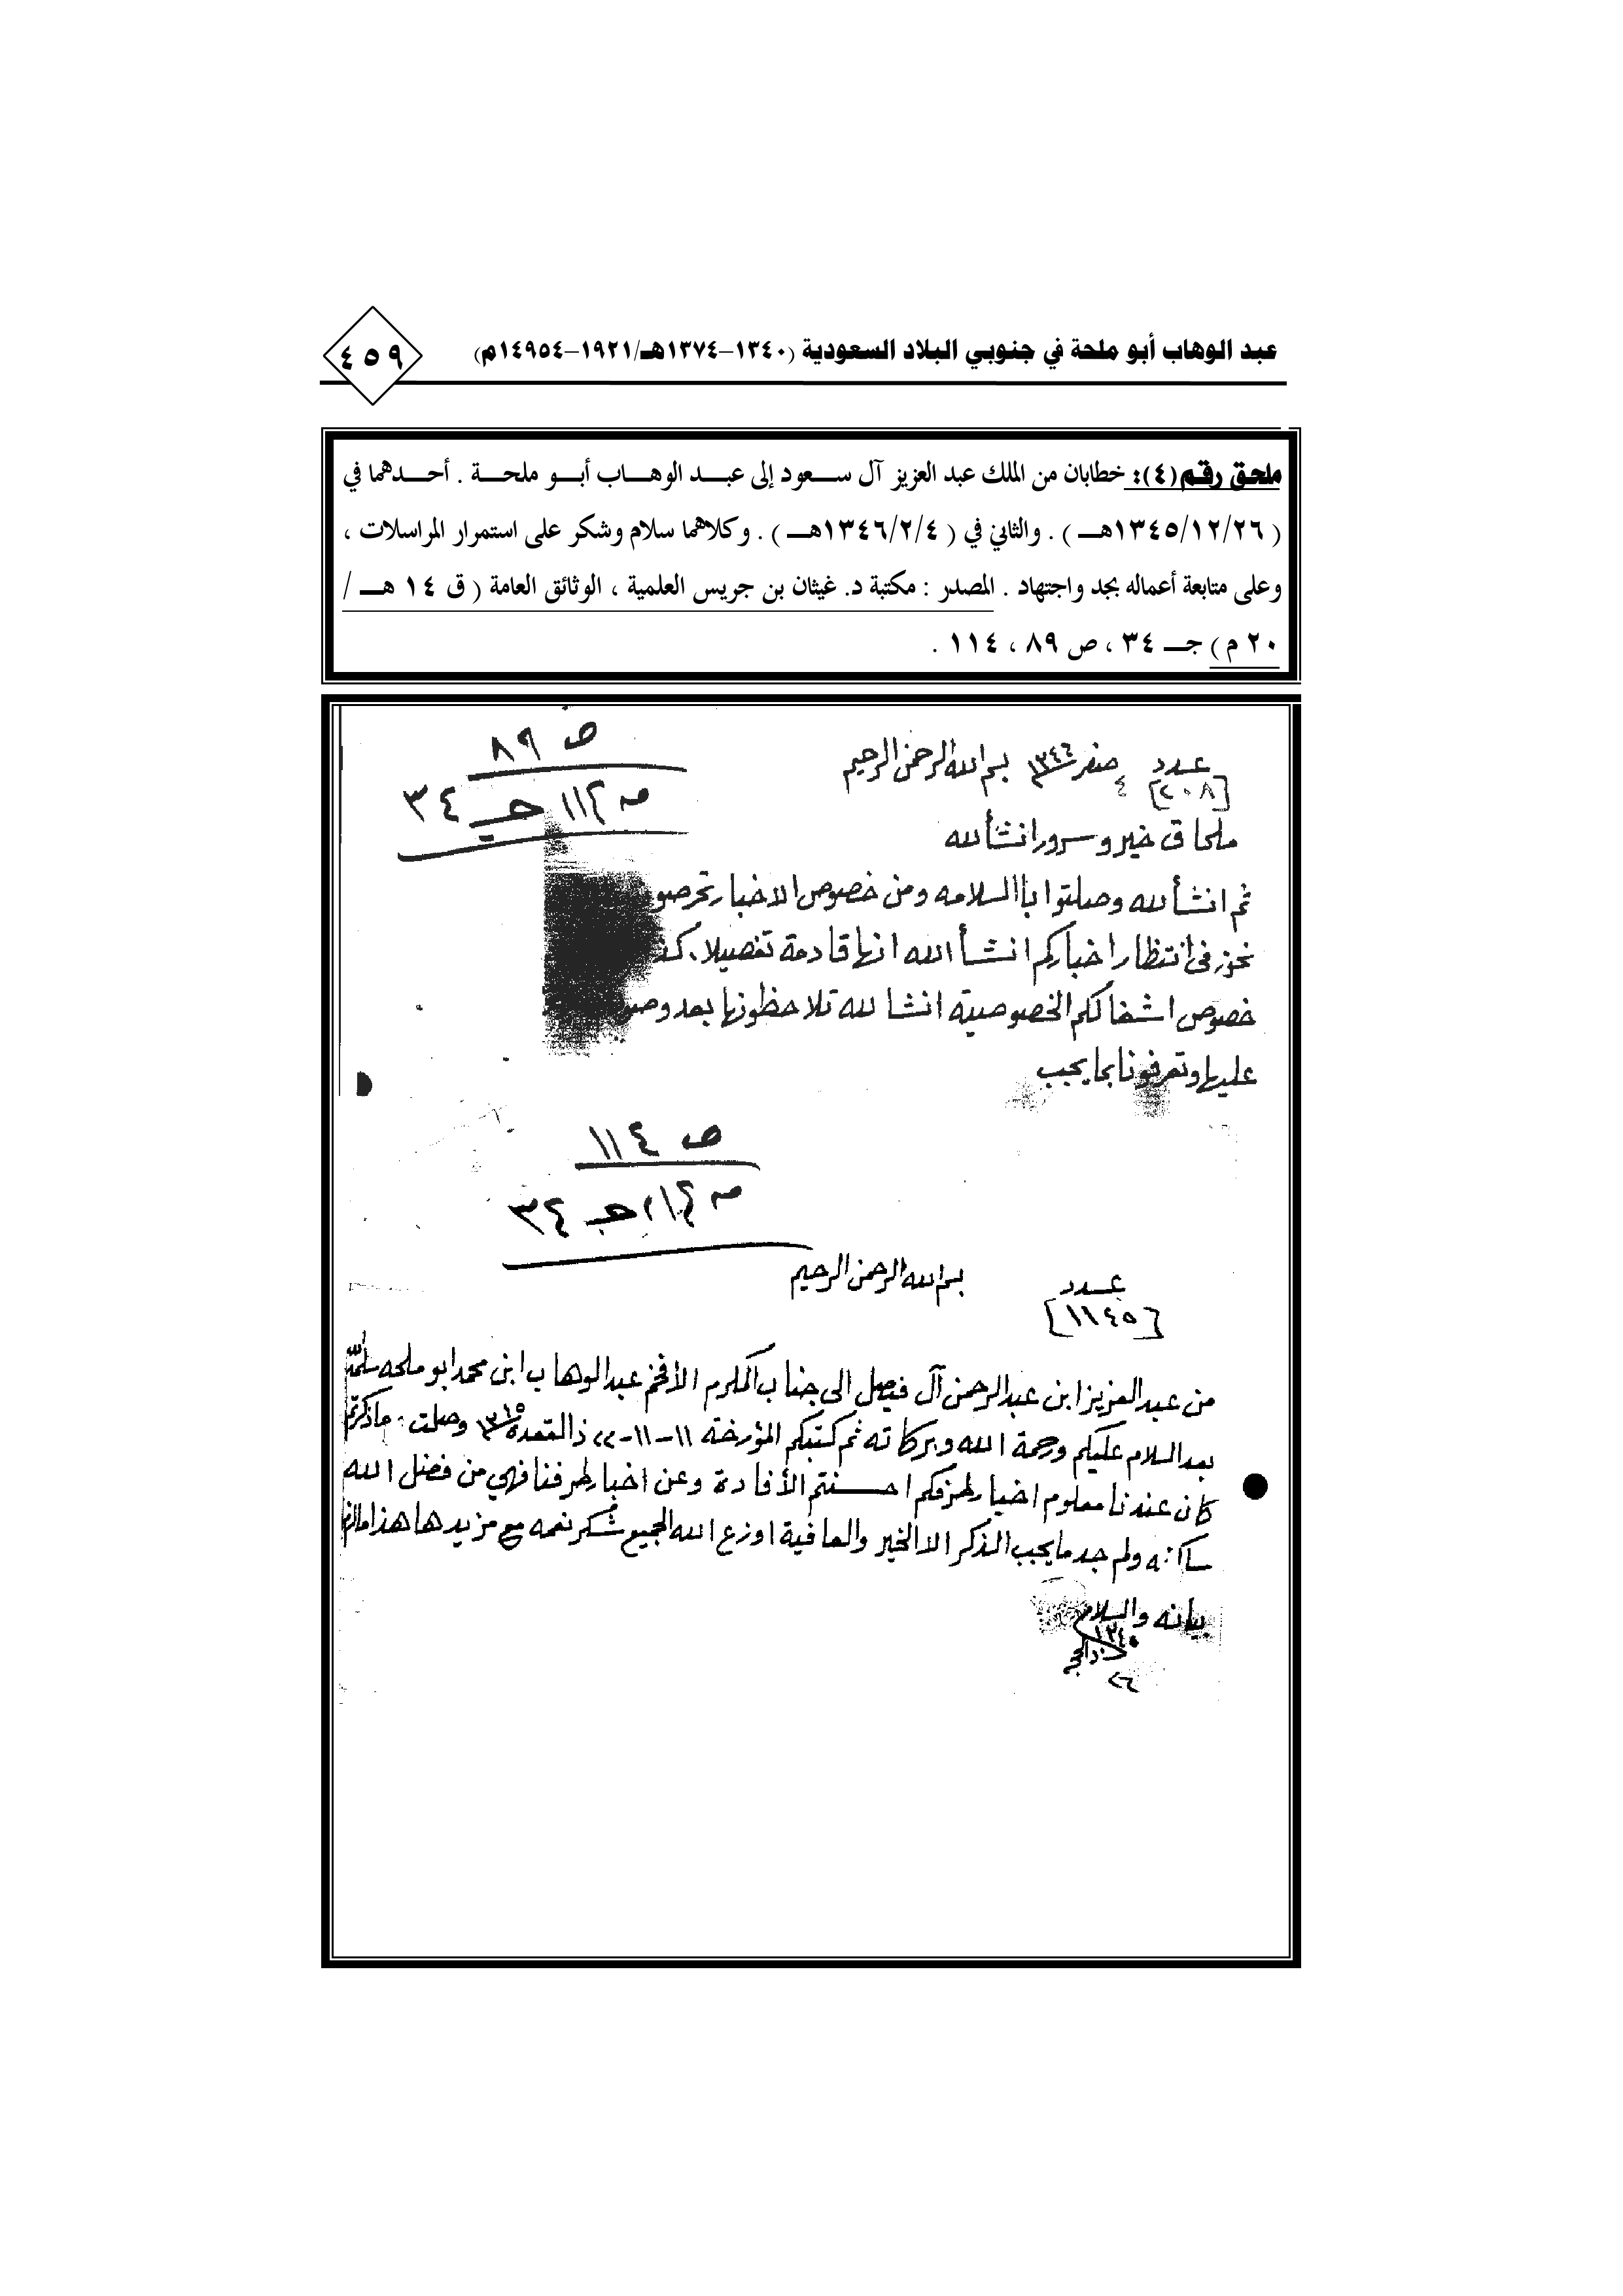 عبد الوهاب أبو ملحة في جنوبي البلاد السعودية (١٣٤٠–١٣٧٤هـ/١٩٢١–١٤٩٥٤م)
٤٥٩
ملحق رقم (٤): خطابان من الملك عبد العزيز آل سعود إلى عبد الوهاب أبو ملحة . أحدهما في
( ١٣٤٥/١٢/٢٦هـ ) . والثاني في ( ١٣٤٦/٢/٤هـ ) . وكلاهما سلام وشكر على استمرار المراسلات ،
وعلى متابعة أعماله بجد واجتهاد . المصدر : مكتبة د. غيثان بن جريس العلمية ، الوثائق العامة ( ق ١٤ هـ /
٢٠ م ) جـ ٣٤ ، ص ٨٩ ، ١١٤ .
ص ٨٩
جـ ٣٤
عدد ٤ صفر ١٣٤٦ بسم الله الرحمن الرحيم
[٢٠٨]
ملحاق خير وسرور انشأ لله
ثم انشأ لله وصلتوا باالسلامه ومن خصوص الاخبار تحرصو
نحن في انتظار اخباركم انشأ الله انها قادمة تفصيلا
خصوص اشغالكم الخصوصيته انشا لله تلاحظونها بعد
عليها وتعرفونا بما يجب
ص ١١٤
جـ ٣٤
بسم الله الرحمن الرحيم
عدد
[١١٤٥]
من عبد العزيز ابن عبد الرحمن آل فيصل الى جناب المكرم الأفخم عبد الوهاب ابن محمد ابو ملحه سلمه
بعد السلام عليكم ورحمة الله وبركاته ثم كتبكم المؤرخة ١١-١١-٢٢ ذالقعدة ١٣٤٥ وصلت ماذكرتم
كان عندنا معلوم اخبار طرفكم احسنتم الأفادة وعن اخبار طرفنا فهي من فضل الله
ساكنه ولم جد ما يجب الذكر الا الخير والعافية اوزع الله الجميع شكر نعمه مع مزيدها هذا
بيانه والسلام
١٣٤٥
ذالحجه
٢٦